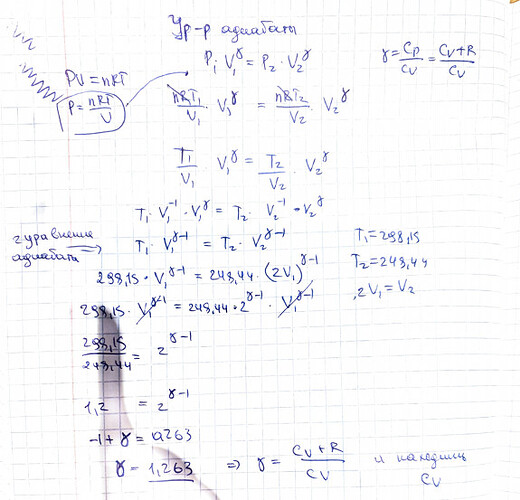 Ур-р адиабаты
P₁ V₁^γ = P₂ · V₂^γ
γ = Cp/Cv = (Cv+R)/Cv
PV = nRT
P = nRT/V
nRT₁/V₁ · V₁^γ = nRT₂/V₂ · V₂^γ
T₁/V₁ · V₁^γ = T₂/V₂ · V₂^γ
T₁ · V₁⁻¹ · V₁^γ = T₂ · V₂⁻¹ · V₂^γ
2 уравнение адиабаты
T₁ · V₁^γ-1 = T₂ · V₂^γ-1
T₁ = 298,15
T₂ = 248,44
2V₁ = V₂
298,15 · V₁^γ-1 = 248,44 · (2V₁)^γ-1
298,15 · V₁^γ-1 = 248,44 · 2^γ-1 · V₁^γ-1
298,15/248,44 = 2^γ-1
1,2 = 2^γ-1
-1 + γ = 0,263
γ = 1,263 ⇒ γ = (Cv + R)/Cv и находишь Cv